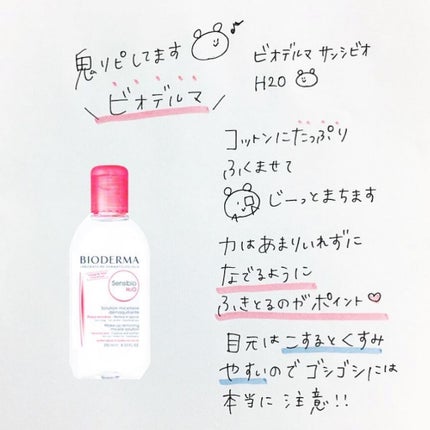 鬼リピしてます
\ビオデルマ/
ビオデルマ サンシビオ
H2O
コットンにたっぷり
ふくませて
じーっとまちます
力はあまりいれずに
なでるように
ふきとるのがポイント♡
目元はこするとくすみ
やすいのでゴシゴシには
本当に注意!!
BIODERMA
LABORATOIRE DERMATOLOGIQUE
Sensibio
H2O
Solution micellaire
démaquillante
Make-up removing
micelle solution